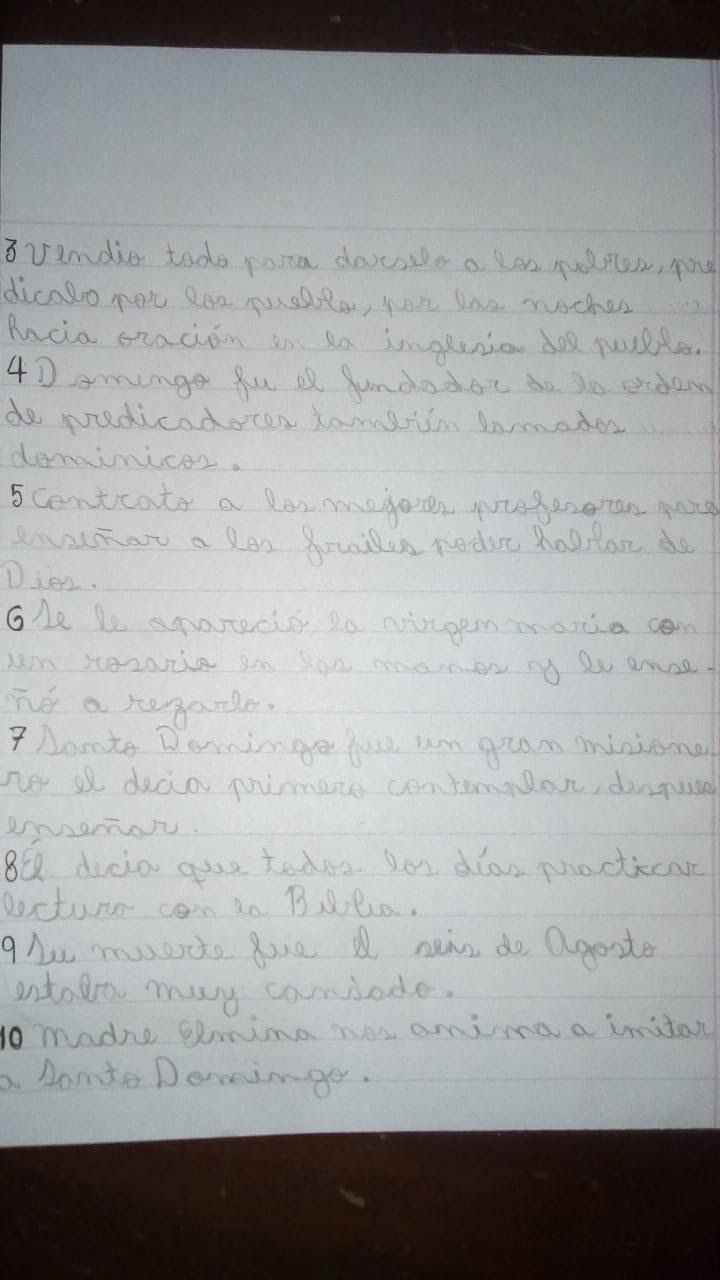 3 Vendio todo para darselo a los pobres, pre
dicabo por los pueblo, por las noches
hacia oración en la inglesia del pueblo.
4 Domingo fu el fundador de la orden
de predicadores también lamados
dominicos.
5 Contrato a los mejores profesores para
enseñar a los frailes poder hablar de
Dios.
6 Se le apareció la virgen maria con
un rosario en las manos y le ense-
ñó a rezarlo.
7 Santo Domingo fue un gran misione
ro el decia primero contemplar, despues
enseñar.
8 Él decia que todos los días practicar
lectura con la Biblia.
9 Su muerte fue el seis de Agosto
estaba muy cansado.
10 Madre Elmina nos anima a imitar
a Santo Domingo.